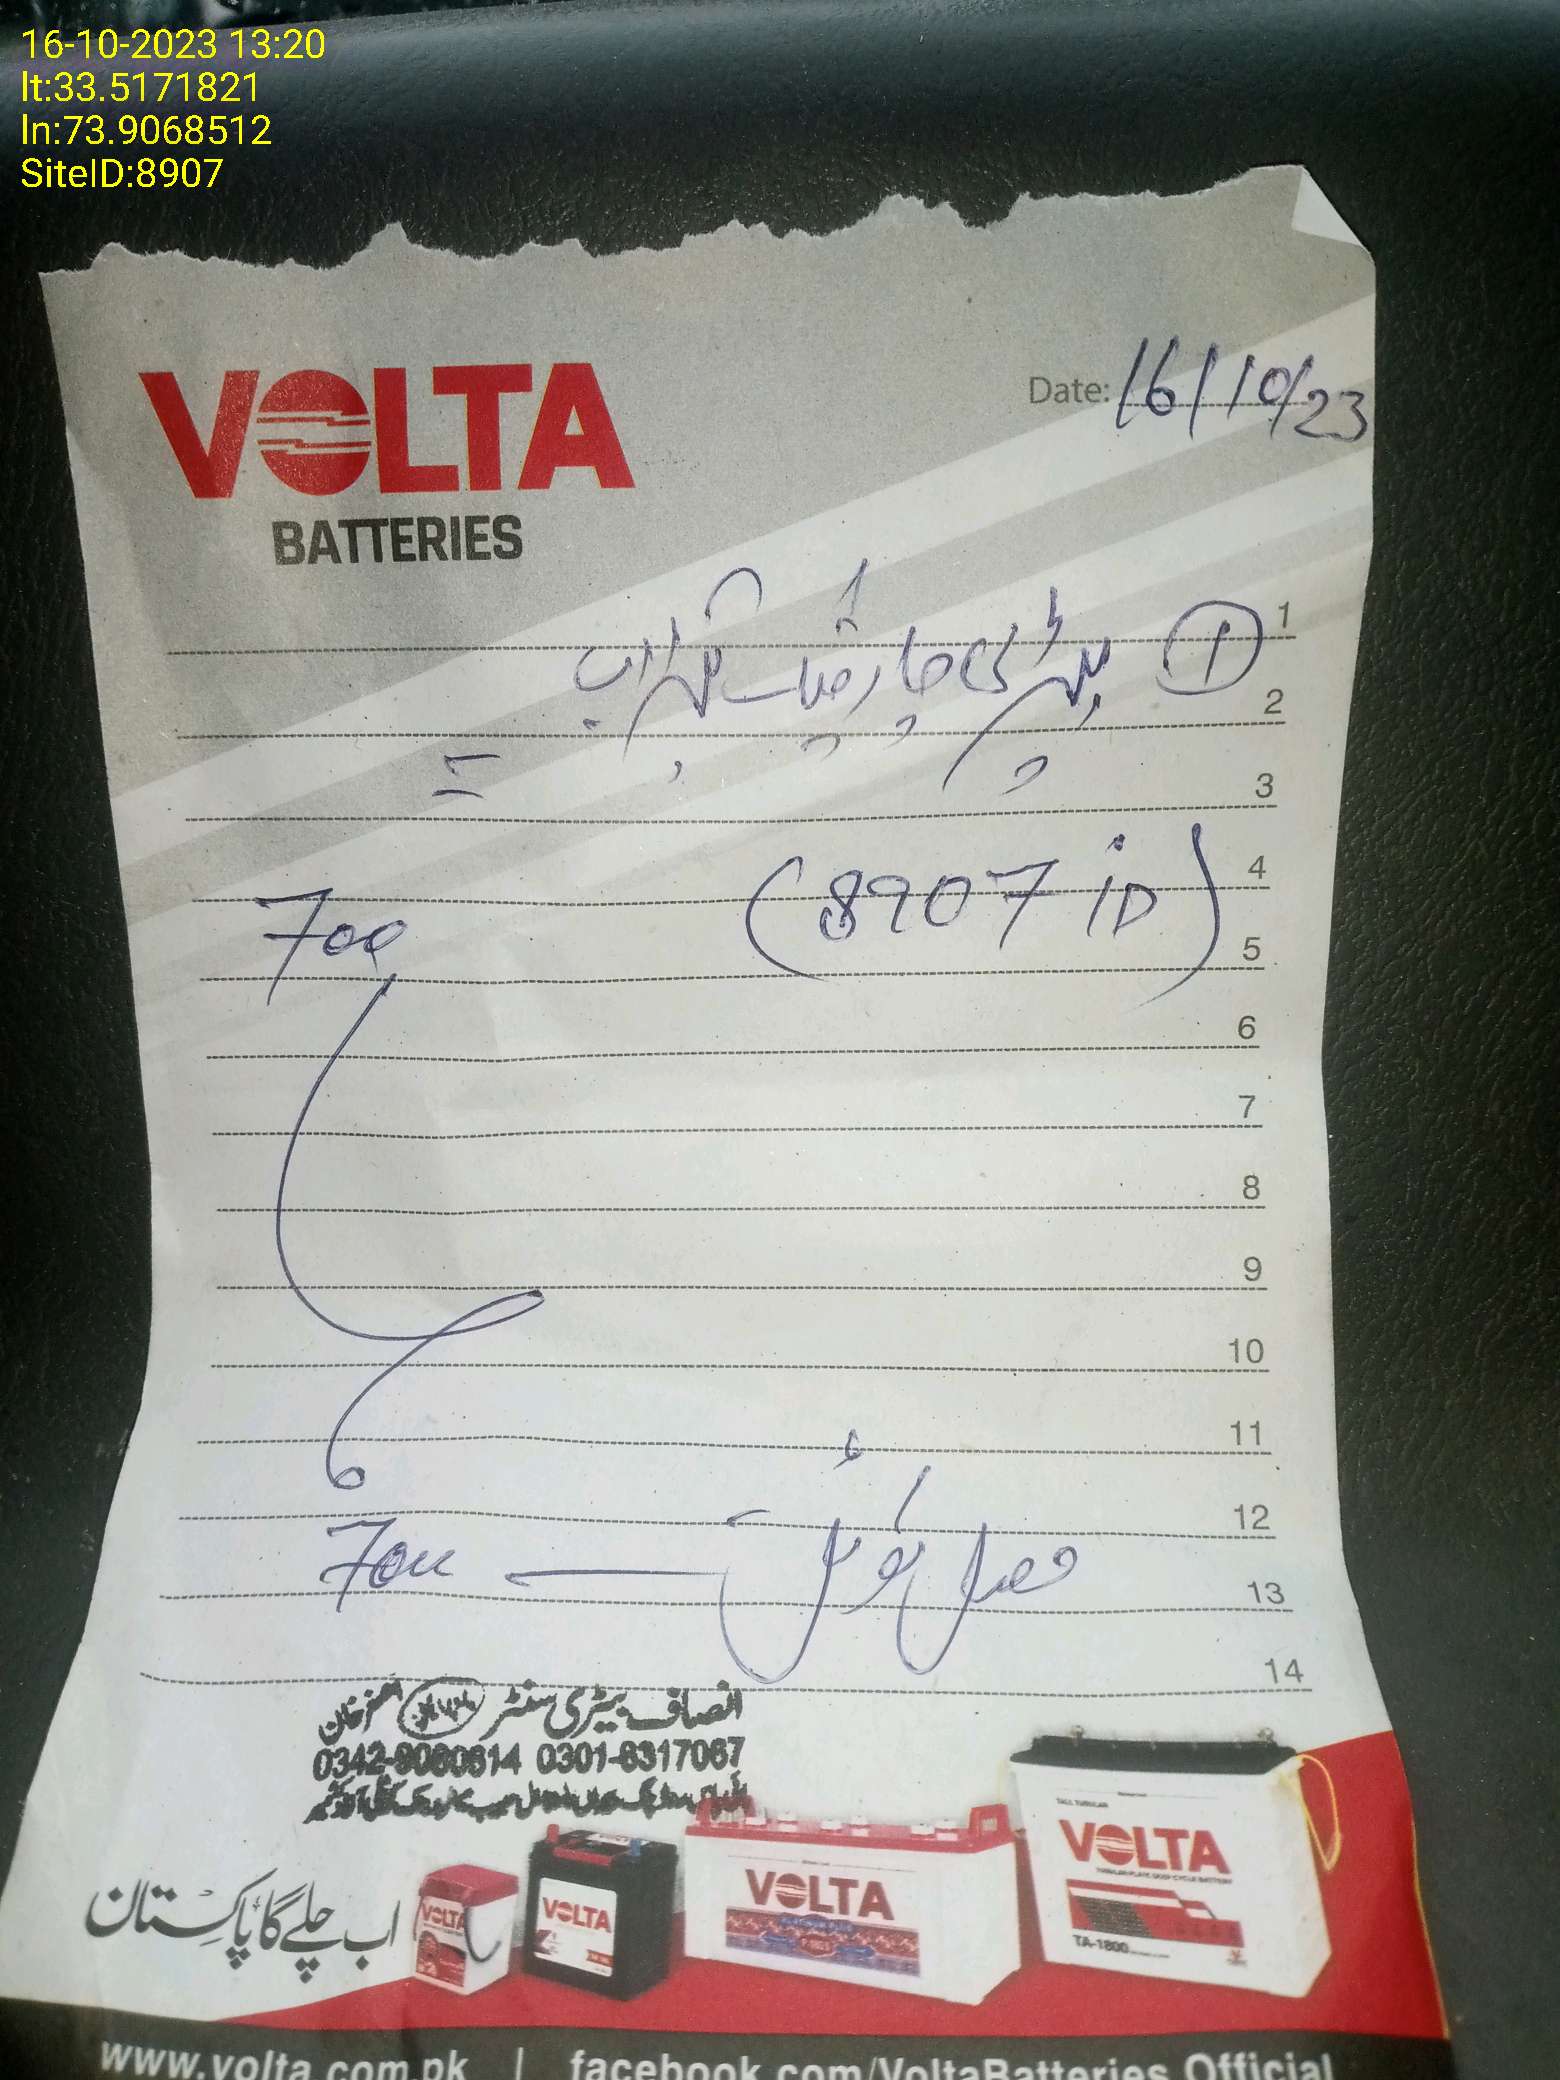 16-10-2023 13:20
lt:33.5171821
ln:73.9068512
SiteID:8907
VOLTA
BATTERIES
Date: 16/10/23
1
① بیٹری چارجنگ
2
3
4
700 (8907 iD)
5
6
7
8
9
10
11
12
700
13
14
انصاف بیٹری سنٹر
0342-9060614 0301-8317067
اب چلے گا پاکستان
VOLTA
VOLTA
VOLTA
TALL TUBULAR
VOLTA
TUBULAR PLATE DEEP CYCLE BATTERY
TA-1800
www.volta.com.pk | facebook.com/VoltaBatteries.Official